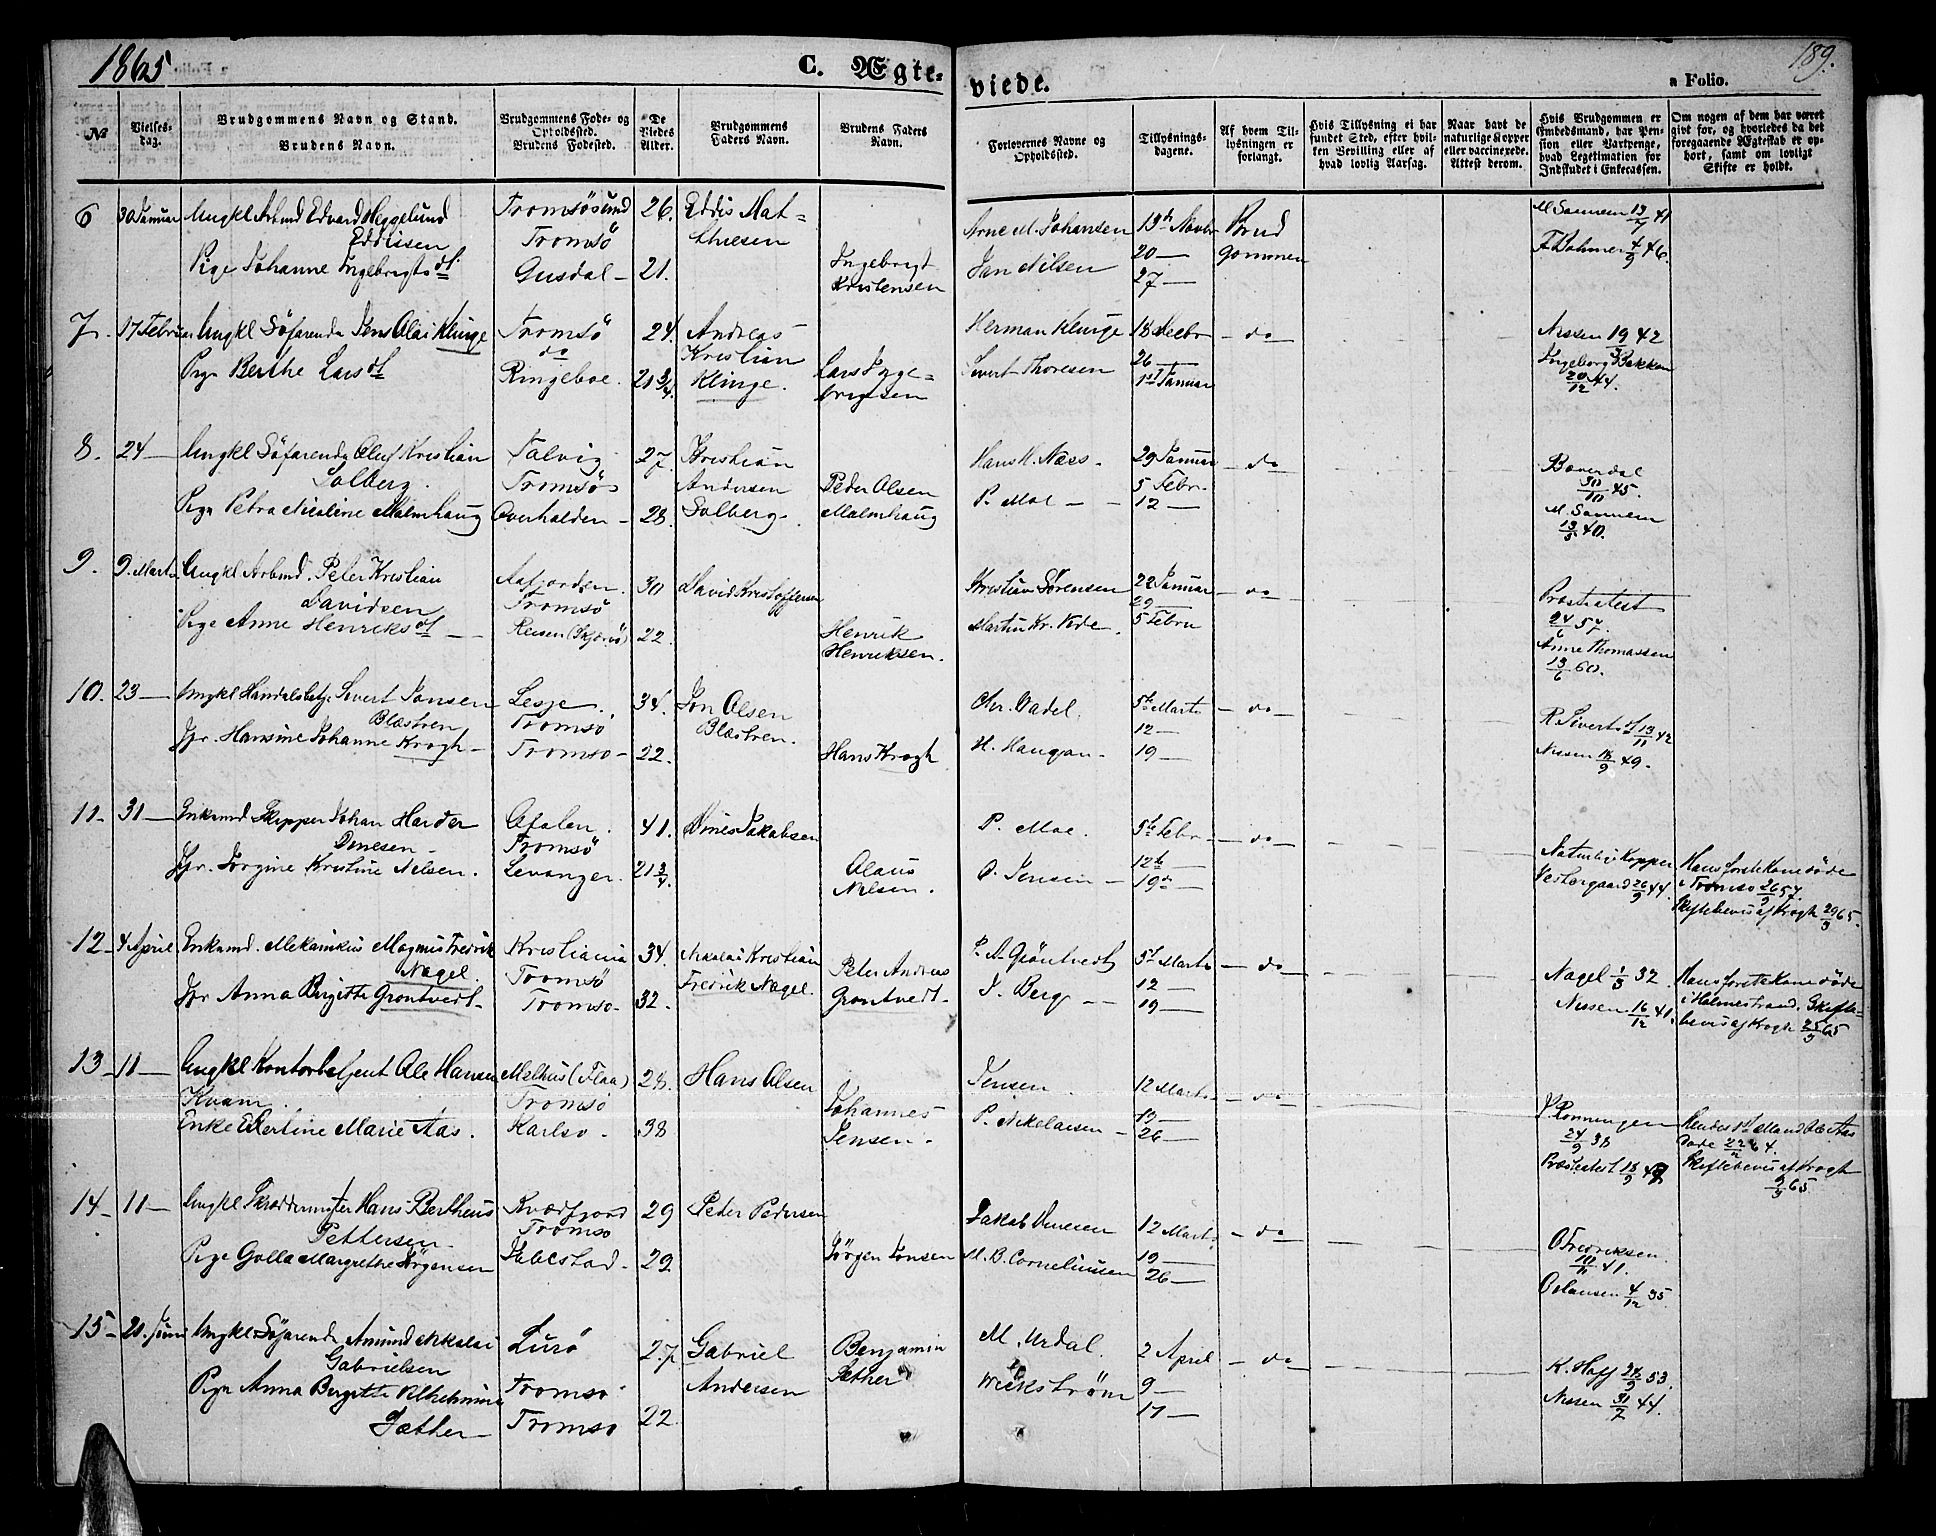 1865
C. Ægte-
viede.
a Folio.
189.
No
Vielses-
dag.
Brudgommens Navn og Stand.
Brudens Navn.
Brudgommens Føde- og
Opholdssted.
Brudens Fødested.
De
Viedes
Alder.
Brudgommens
Faders Navn.
Brudens Faders
Navn.
Forlovernes Navne og
Opholdssted.
Tillysnings-
dagene.
Af hvem Til-
lysningen er
forlangt.
Hvis Tillysning ei har
fundet Sted, efter hvil-
ken Bevilling eller af
hvad lovlig Aarsag.
Naar havt de
naturlige Kopper
eller vaccinerede.
Attest derom.
Hvis Brudgommen er
Embedsmand, har Pen-
sion eller Vartpenge,
hvad Legitimation for
Indskudet i Enkecassen.
Om nogen af dem har været
givt før, og hvorledes da det
foregaaende Ægteskab er op-
hørt, samt om lovligt
Skifte er holdt.
6 30 Januar Ungkl Arbmd Edvard Heggelund
Eddisen
Pige Johanne Ingebrigtsdt
Tromsösund
Tromsö
Gusdal
26.
21.
Eddis Mat=
thiesen
Ingebrigt
Kristensen
Arne M. Johansen
Jan Nilsen
13de Novbr
20
27
Brud
gommen
M Sannem 13/7 41
F. Bohmer 4/9 46.
7. 17 Februar Ungkl Söfarende Jens Olai Klinge
Pige Berthe Larsdt
Tromsö
do
Ringeboe.
24.
21 3/4.
Andreas
Kristian
Klinge.
Lars Inge=
brigtsen
Herman Klinge
Sivert Thoresen
18 Decbr
26
1st Januar
do
Nissen 19/9 42
Ingeborg Bakken
20/12 44.
8. 24 Ungkl Söfarende Oluf Kristian
Solberg.
Pige Petra Nicoline Malmhaug
Talvig
Tromsö
Overhalden
27
28.
Kristian
Andersen
Solberg.
Peder Olsen
Malmhaug
Hans H. Næss.
P. Moe
29 Januar
5 Febr.
12
do
Boverdal
30/10 45.
M. Sannem
13/5 40.
9. 9. Marts Ungkl Arbmd. Peter Kristian
Davidsen
Pige Anne Henriksdt
Aafjorden.
Tromsö
Reisen (Skjervö)
30
22.
David Kristoffersen
Henrik
Henriksen.
Kristian Sørensen
Martin Kr. Vede.
22 Januar
29
5 Febru
do
Præsteatest
24/6 57
Anne Thomassen
13/6 60.
10. 23 Ungkl Handelsbetj. Sivert Jonsen
Blæstren
Jfr. Hansine Johanne Krogh
Lesje.
Tromsö
Tromsö
34.
22.
Jon Olsen
Blæstren.
Hans Krogh
Chr. Dadel.
H. Haugan.
5te Marts
12
19
do
R Sivertsdt 13/11 42
Nissen 18/9 49.
11 31 Enkemd Skipper Johan Harder
Dinesen
Jfr. Jorgine Kristine Nilsen.
Tromsö
Levanger.
41.
21 3/4.
Dines Jakobsen
Olaus
Nilsen.
P. Moe.
O. Jensen
5te Febr
12te
19de
do
Naturlige Kopper
Vestergaard 26/9 44.
Hans forste Kone döde
i Tromsö 26/9 57
Skiftebevis af Krogh 29/3 65.
12 4 April. Enkemd. Mekanikus Magnus Fredrik
Nagel.
Jfr Anna Birgitte Grøntvedt
Kristiania
Tromsö
Tromsö
34.
32.
Nikolai Kristian
Fredrik Nagel.
Peter Andreas
Grøntvedt
P. A. Gröntvedt
J. Berg
5te Marts
12
19
do
Nagel 1/3 32
Nissen 16/12 41.
Hans forste Kone döde
i Holmestrand. Skifte=
bevis af Krogh 25/3 65
13 11 Ungkl Kontorbetjent Ole Hansen
Kvam.
Enke Elertine Marie Aas.
Melhus (Flaa)
Tromsö
Karlsö
28.
38
Hans Olsen
Johannes
Jensen
Jensen
P. Nikolaisen
12 Marts
19
26
do
P. Ronningen
24/9 38
Præsteatest 18/9 47
Hendes 1ste Mand Ole Aas
Skiftebevis af Krogh
9/3 65
14 11 Ungkl Skreddermester Hans Bertheus
Pettersen
Pige Golla Margrethe Jörgensen
Kvædfjord
Tromsö
Ibbestad
29
29
Peter Pedersen
Jörgen Jonsen
Jakob Dinesen
M. B. Corneliussen
12 Marts
19
26
do
O Fredriksen
10/11 41.
Oelausen 4/12 35.
15 21. Juni Ungkl Söfarende Amund Nikolai
Gabrielsen
Pige Anna Bergitte Vilhelmine
Sæther
Lurö
Tromsö
Tromsö
27
22.
Gabriel
Andersen
Benjamin
Sæther
M. Urdal.
Wickström
2 April
9
17
do
K. Hoff 24/9 53.
Nissen 31/7 44.